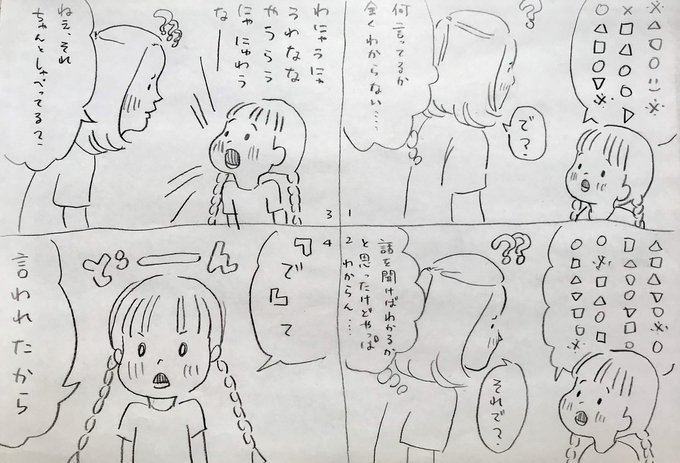 1
??
で?
何言ってるか
全くわからない…
2
??
それで?
話を聞けばわかるか
と思ったけどやっぱ
わからん…
3
わにゃうにゃ
うわなな
やうらう
にゃにゅわう
なー
???
ねぇ、それ
ちゃんとしゃべってる?
4
「で」って
どーん
言われたから